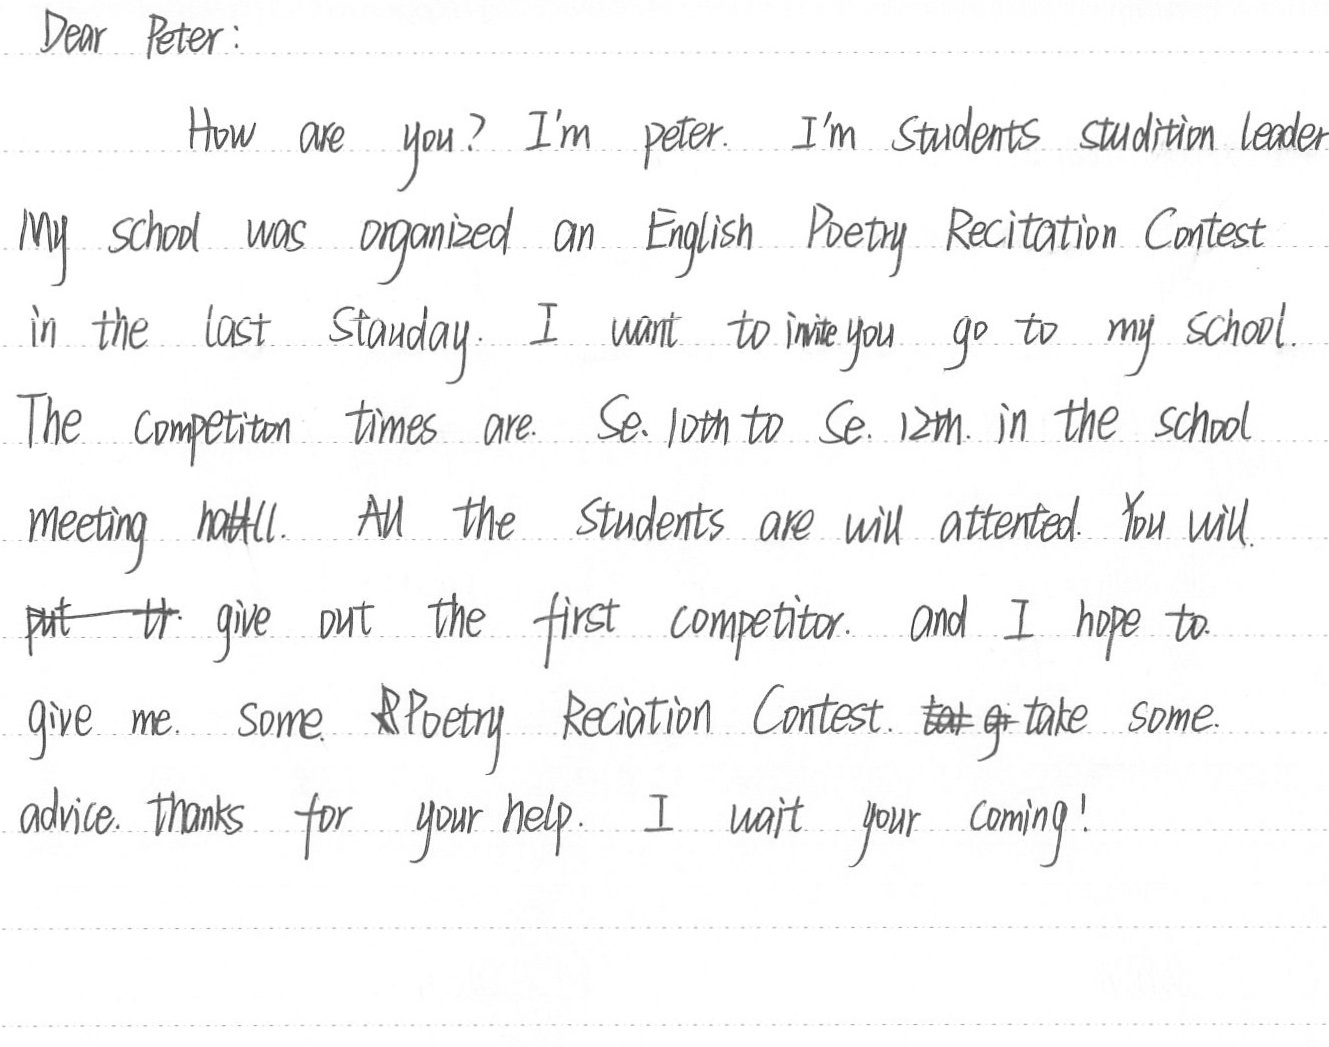 Dear Peter:
How are you? I'm peter. I'm students studition leader
My school was organized an English Poetry Recitation Contest
in the last Stauday. I want to invite you go to my school.
The competiton times are. Se. 10th to Se. 12th. in the school
meeting hall. All the students are will attented. You will.
give out the first competitor. and I hope to.
give me. some. Poetry Reciation Contest. take some.
advice. thanks for your help. I wait your coming!